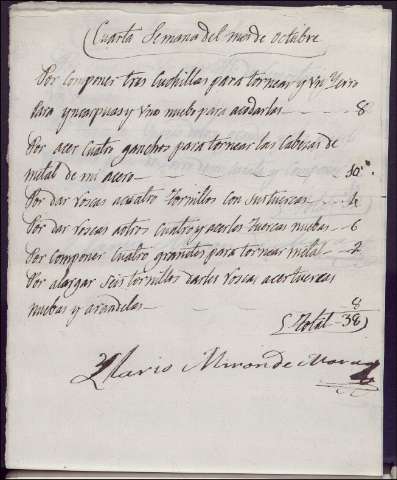 Cuarta Semana del mes de octubre
Por componer tres Cuchillas para tornear y un Yerro
para yncarpuas y uno nuebo para acodarlas — 8
Por acer Cuatro ganchos para tornear las Caberas de
metal de mi acero — 10
Por dar roscas acuatro tornillos con sus tuercas — 4
Por dar roscas aotros Cuatro y acerles tuercas nuebas — 6
Por componer Cuatro grandes para tornear metal — 2
Por alargar Seis tornillos darles roscas acer tuercas
nuebas y arandelas — 8
Total — 38
Ylario Miron de Mora